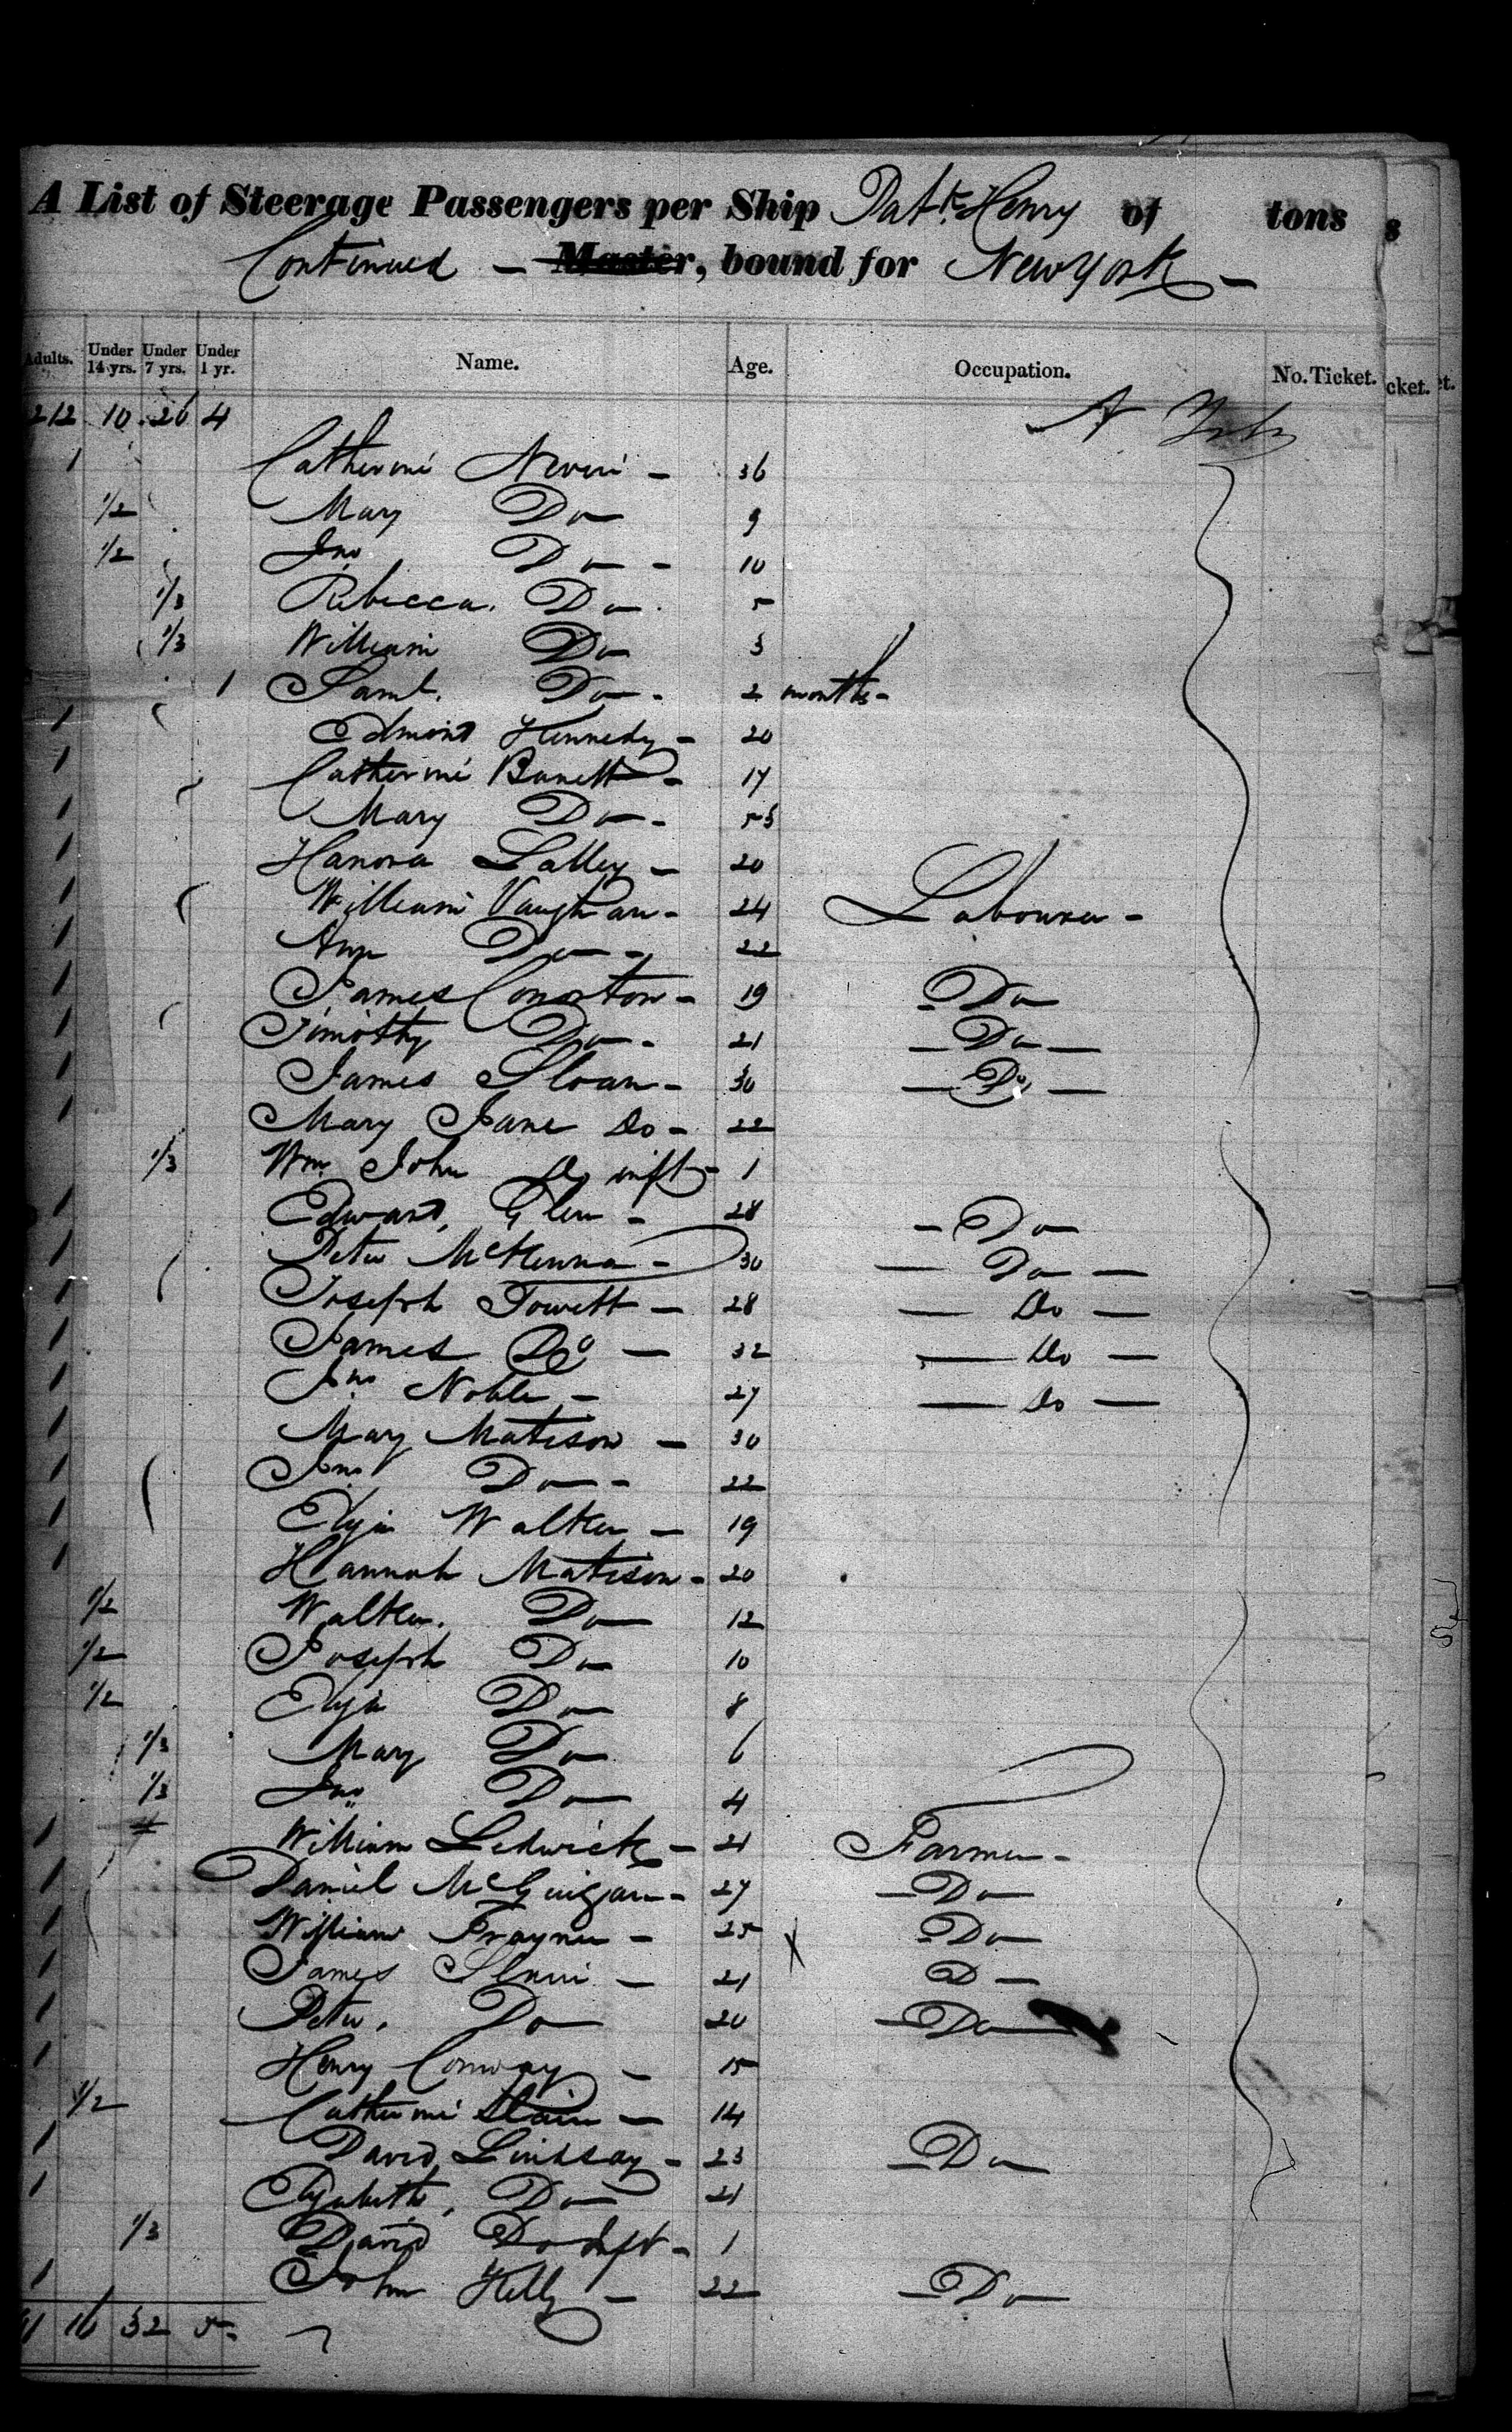 A List of Steerage Passengers per Ship Patk. Henry of tons s
Continued — Master, bound for New York —
Adults. Under 14 yrs. Under 7 yrs. Under 1 yr. Name. Age. Occupation. No. Ticket. cket. t.
212 10 26 4 N York
1 Catherine Nevin — 36
1/2 Mary Do 9
1/2 Jno Do - 10
1/3 Rebecca Do 5
1/3 William Do 3
1 Saml. Do - 2 months -
1 Edmond Kennedy - 20
1 Catherine Barrett - 17
1 Mary Do - 53
1 Hanora Lalley - 20
1 William Vaughan - 24 Labourer -
1 Ann Do - 22
1 James Conoton - 19 Do
1 Timothy Do - 21 — Do —
1 James Sloan - 30 — Do —
1 Mary Jane Do - 22
1/3 Wm John Do inft - 1
1 Edward Glen - 28 — Do
1 Peter McKenna - 30 — Do —
1 Joseph Towett — 28 — Do —
1 James Do — 32 — Do —
1 Jno Noble - 27 — Do —
1 Mary Matison — 30
1 Jno Do - 22
1 Eliza Walker — 19
1 Hannah Matison - 20
1/2 Walker Do 12
1/2 Joseph Do 10
1/2 Eliza Do 8
1/3 Mary Do 6
1/3 Jno Do 4
1 William Ledwick - 21 Farmer -
1 Daniel McGuigan - 27 — Do
1 William Frayner - 25 x Do
1 James Slavin — 21 Do
1 Peter Do 20 — Do
1 Henry Conway - 15
1/2 Catherine — 14
1 David Lindsay - 23 — Do
1 Elizabeth, Do 21
1/3 David Do Inft - 1
1 John Kelly - 22 — Do
16 32 5 -